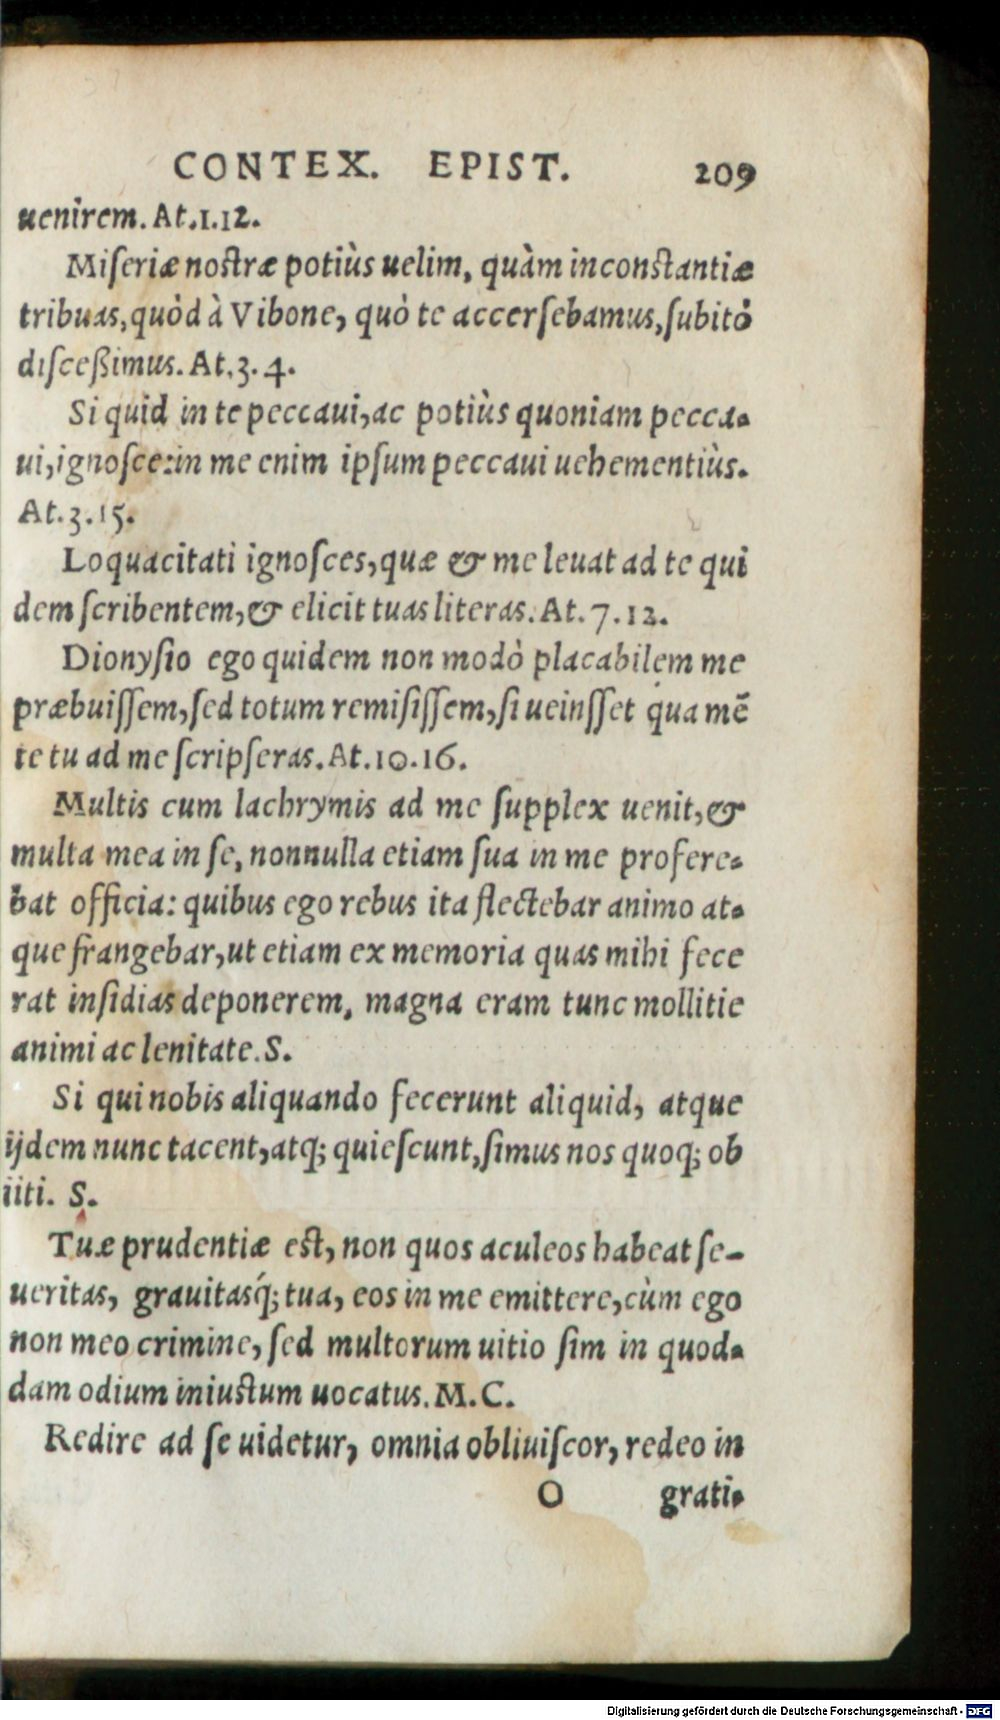 CONTEX. EPIST. 209
uenirem. At.1.12.
Miſeriæ noſtræ potiùs uelim, quàm inconſtantiæ
tribuas, quòd à Vibone, quò te accerſebamus, ſubitò
diſceßimus. At.3.4.
Si quid in te peccaui, ac potiùs quoniam pecca-
ui, ignoſce: in me enim ipſum peccaui uehementiùs.
At.3.15.
Loquacitati ignoſces, quæ & me leuat ad te qui
dem ſcribentem, & elicit tuas literas. At.7.12.
Dionyſio ego quidem non modò placabilem me
præbuiſſem, ſed totum remiſiſſem, ſi ueinſſet qua mẽ
te tu ad me ſcripſeras. At.10.16.
Multis cum lachrymis ad me ſupplex uenit, &
multa mea in ſe, nonnulla etiam ſua in me profere-
bat officia: quibus ego rebus ita flectebar animo at-
que frangebar, ut etiam ex memoria quas mihi fece
rat inſidias deponerem, magna eram tunc mollitie
animi ac lenitate. S.
Si qui nobis aliquando fecerunt aliquid, atque
ijdem nunc tacent, atq; quieſcunt, ſimus nos quoq; ob
iiti. S.
Tuæ prudentiæ eſt, non quos aculeos habeat ſe-
ueritas, grauitasq́; tua, eos in me emittere, cùm ego
non meo crimine, ſed multorum uitio ſim in quod-
dam odium iniuſtum uocatus. M.C.
Redire ad ſe uidetur, omnia obliuiſcor, redeo in
O grati-
Digitalisierung gefördert durch die Deutsche Forschungsgemeinschaft - DFG